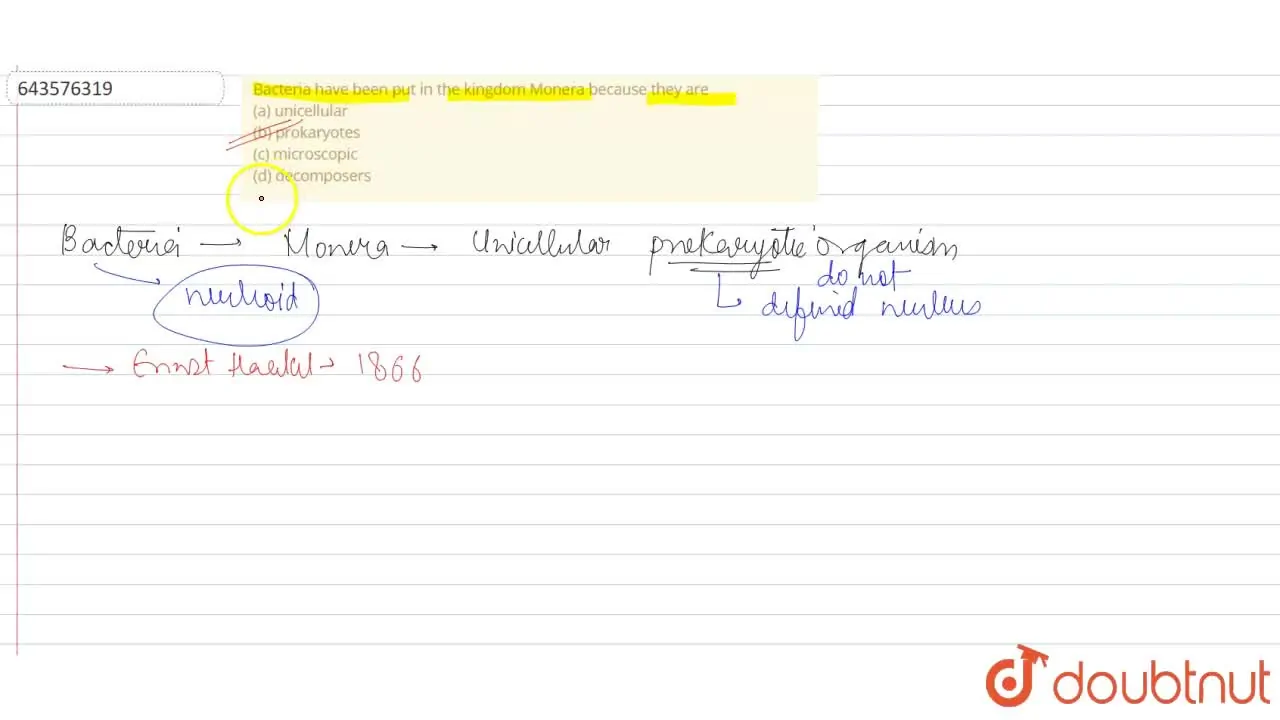 643576319
Bacteria have been put in the kingdom Monera because they are
(a) unicellular
(b) prokaryotes
(c) microscopic
(d) decomposers
Bacteria → Monera → Unicellular prokaryotic organism
do not
nucleoid
defined nucleus
→ Ernst Haeckel → 1866
doubtnut